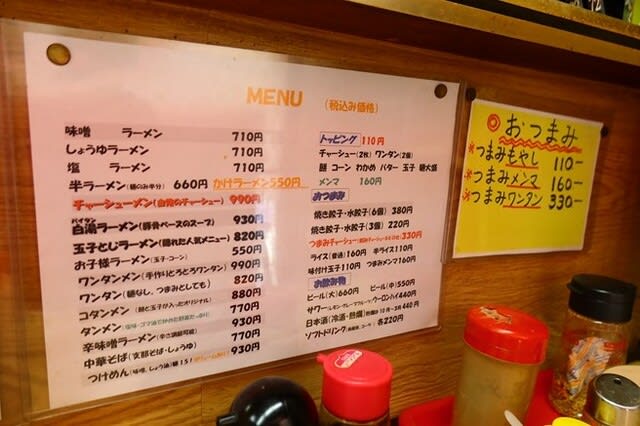 MENU (税込み価格)
味噌 ラーメン 710円
しょうゆラーメン 710円
塩 ラーメン 710円
半ラーメン(麺のみ半分) 660円 かけラーメン550円
チャーシューメン(自慢のチャーシュー) 990円
パイタン
白湯ラーメン(豚骨ベースのスープ) 930円
玉子とじラーメン(隠れた人気メニュー) 820円
お子様ラーメン(玉子・コーン) 550円
ワンタンメン(手作りとろとろワンタン) 990円
ワンタン(麺なし、つまみとしても) 820円
コタンメン(麺と玉子が入ったオリジナル) 880円
タンメン 770円
辛味噌ラーメン(辛さ調節可能) 930円
中華そば(支那そば・しょうゆ) 770円
つけめん(味噌、しょうゆ)麺1.5! 930円
トッピング 110円
チャーシュー(2枚) ワンタン(2個)
麺 コーン わかめ バター 玉子 麺大盛
メンマ 160円
おつまみ
焼き餃子・水餃子(6個) 380円
焼き餃子・水餃子(3個) 220円
つまみチャーシュー 330円
ライス(普通)160円 半ライス110円
味付け玉子110円 つまみメンマ160円
お飲み物
ビール(大)660円 ビール(中)550円
サワー レモン グレープフルーツ ウーロンハイ440円
日本酒(冷酒・熱燗) 440円
ソフトドリンク 各220円
◎おつまみ
※つまみもやし 110ー
※つまみメンマ 160ー
※つまみワンタン 330ー